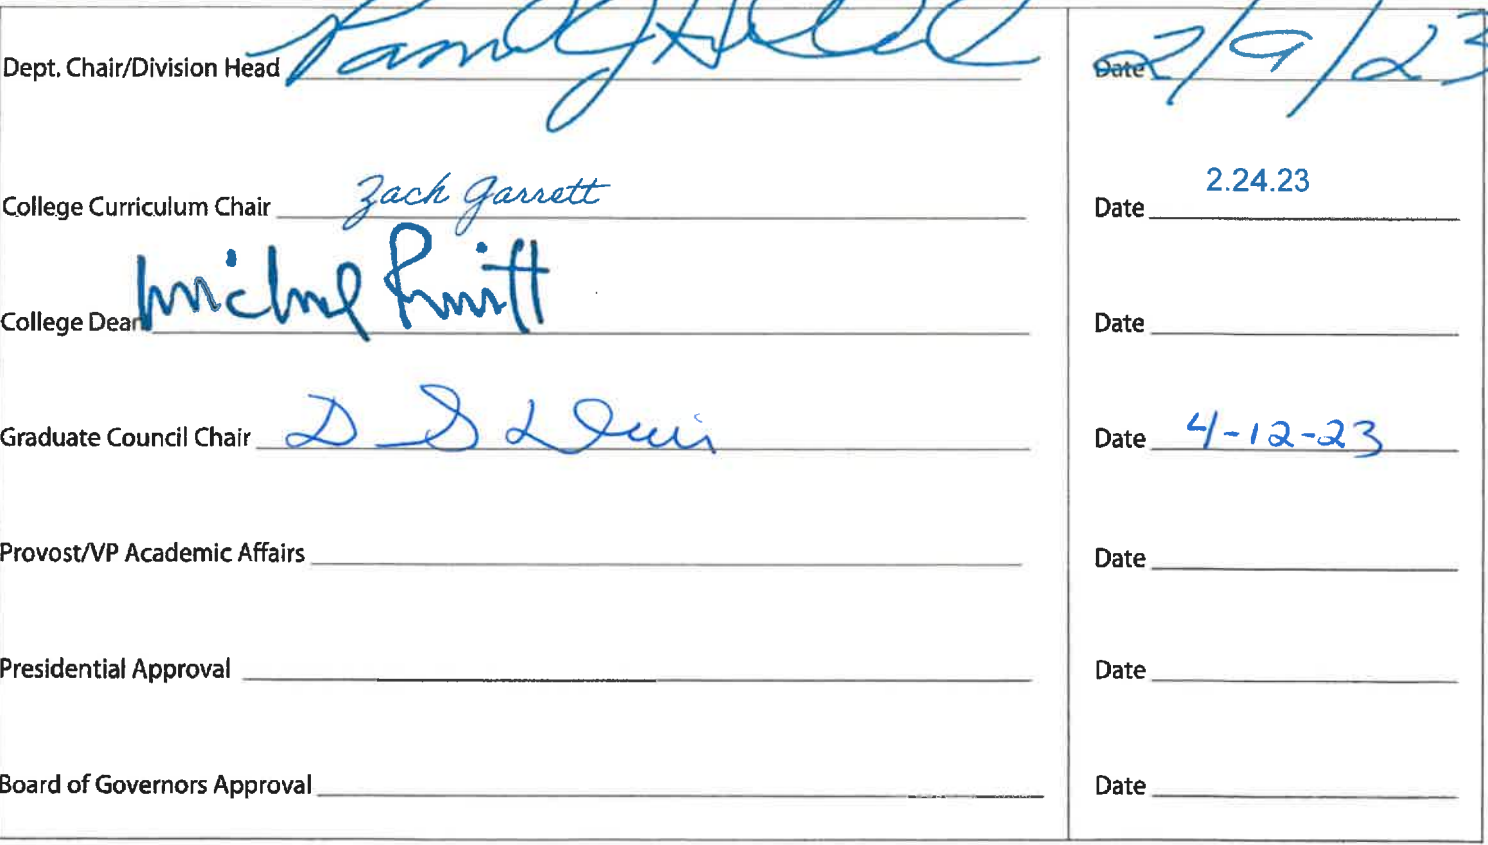 Dept. Chair/Division Head Date 2/9/23
College Curriculum Chair Zach Garrett Date 2.24.23
College Dean Date
Graduate Council Chair D Date 4-12-23
Provost/VP Academic Affairs Date
Presidential Approval Date
Board of Governors Approval Date